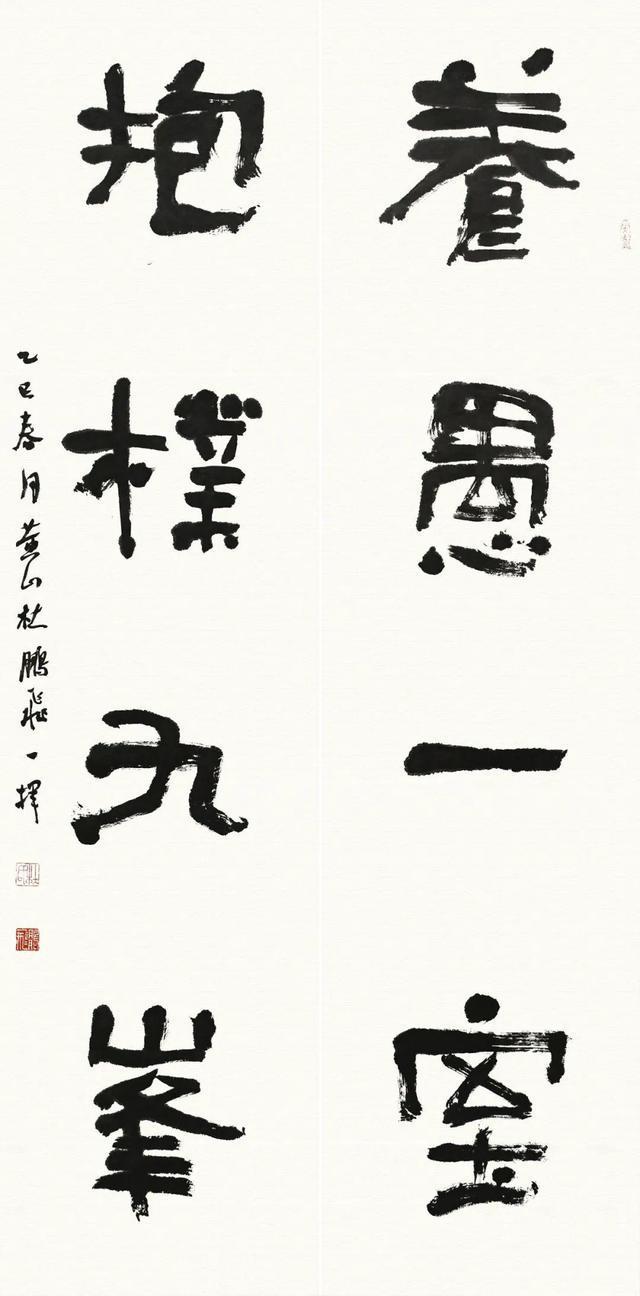 養愚一室
抱樸九峯
乙巳春月黄山杜鵬飛一揮